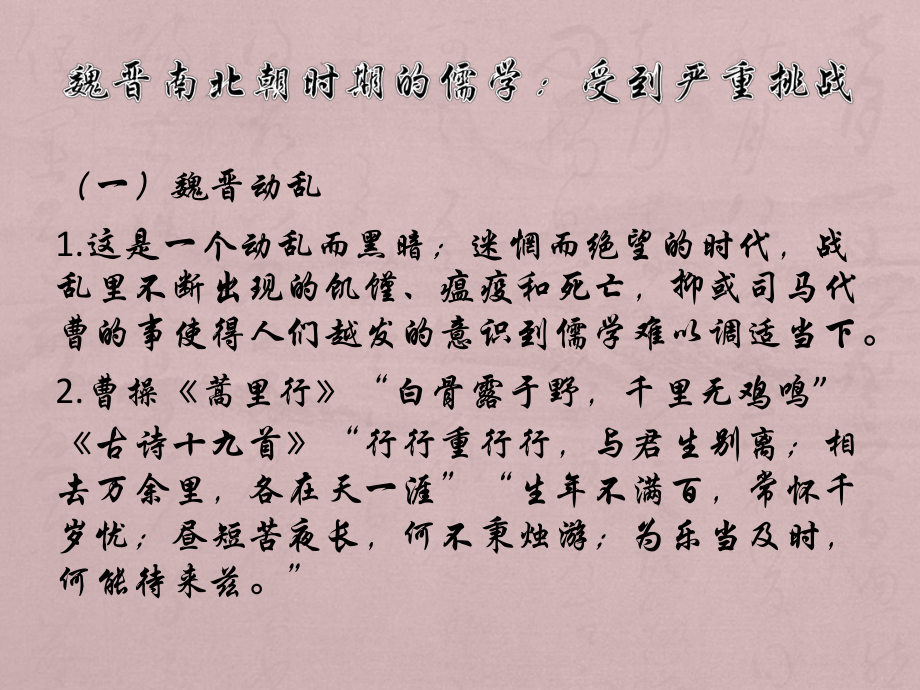 魏晋南北朝时期的儒学：受到严重挑战
（一）魏晋动乱
1.这是一个动乱而黑暗；迷惘而绝望的时代，战
乱里不断出现的饥馑、瘟疫和死亡，抑或司马代
曹的事使得人们越发的意识到儒学难以调适当下。
2.曹操《蒿里行》“白骨露于野，千里无鸡鸣”
《古诗十九首》“行行重行行，与君生别离；相
去万余里，各在天一涯”“生年不满百，常怀千
岁忧；昼短苦夜长，何不秉烛游；为乐当及时，
何能待来兹。”